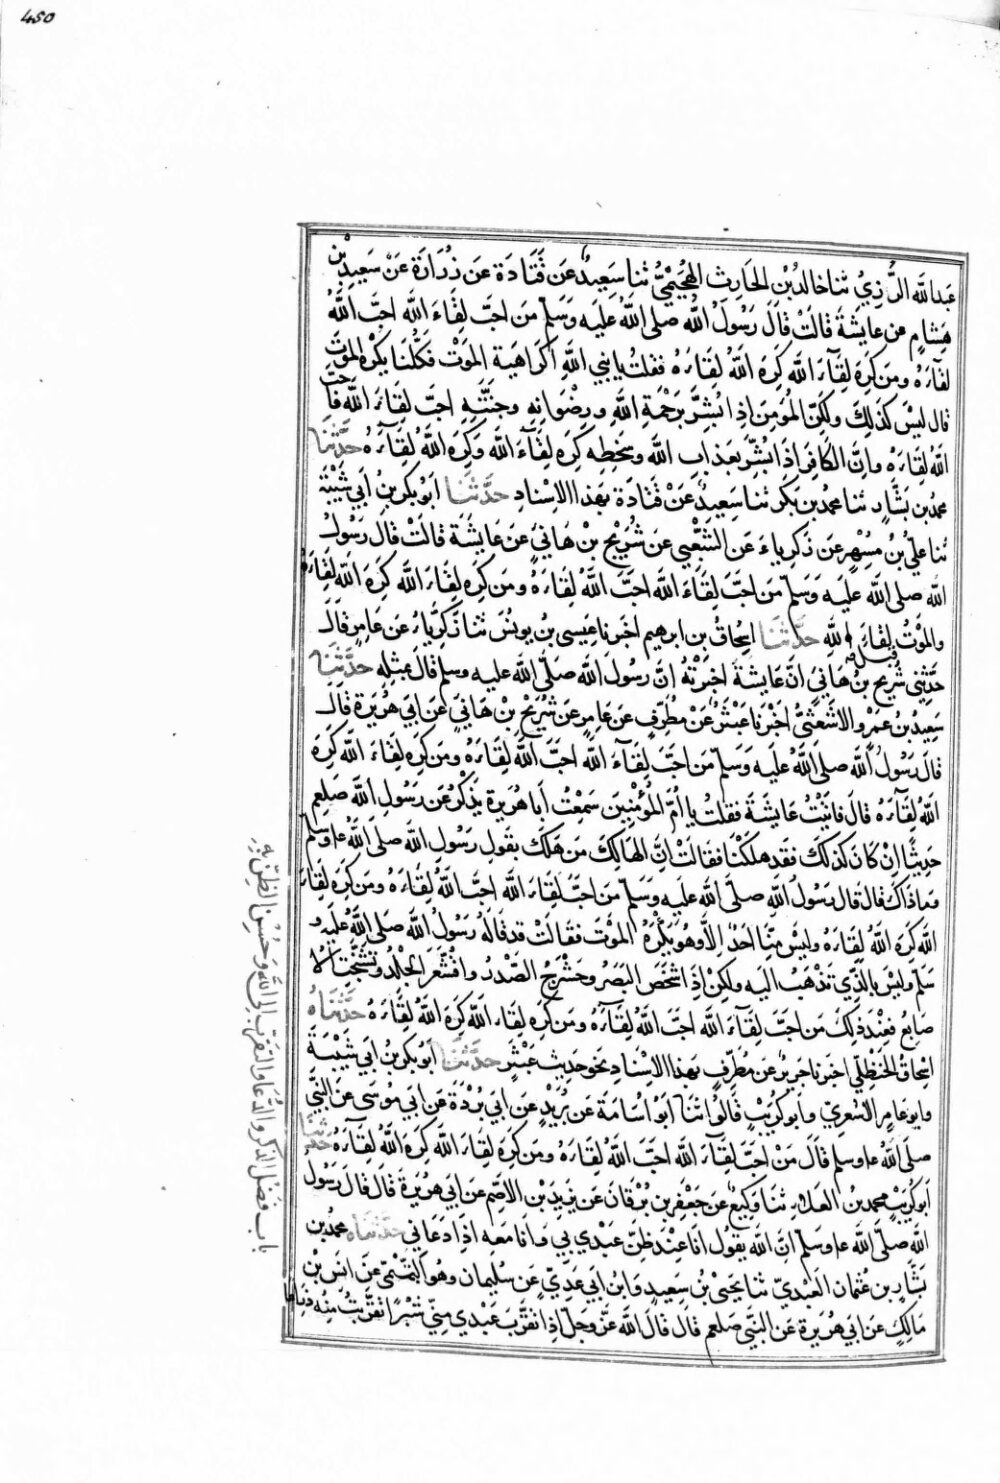 450
عبدالله الرُّزِيُّ ثنا خالدُ بْن الحَارِث الهُجَيْمِيُّ ثنا سَعِيدٌ عَن قَتَادَة عَن زُرَارَةَ عَنْ سَعِيدِ بْن
هِشامٍ عن عايشَةَ قالَتْ قالَ رَسُولُ اللهِ صلى اللهُ عليه وَسَلّمَ مَن احبَّ لِقَاءَ اللهِ احبَّ اللهُ
لقآءَهُ ومَن كرِهَ لِقآءَ اللهِ كَرِهَ اللهُ لِقَاءَهُ فقلتُ يا نبي اللهِ اكَرَاهيةَ المَوْتِ فكلُّنا يكْرَه الموْتَ
قال ليْسَ كذلِكَ ولكِنّ المؤمِنَ اِذا بُشِّرَ بِرَحْمَةِ اللهِ ورِضْوَانِهِ وجنَّتِهِ احبَّ لِقَاءَ اللهِ فاحبَّ
اللهُ لِقَاءَهُ واِنّ الكافِرَ اِذا بُشِّرَ بعَذابِ اللهِ وسَخطِهِ كرِهَ لِقآءَ اللهِ وَكرِهَ اللهُ لِقآءَهُ حدَّثنا
محمدُ بن بَشّارٍ ثنا محمدُ بن بَكر ثنا سَعِيدٌ عَنْ قَتَادَةَ بهَذا الاِسْنادِ حدَّثنا ابُو بكر بن ابي شَيْبَة
ثنا عليُّ بنُ مُسْهِرٍ عَن زكرِيّاءَ عَن الشَّعْبِيّ عَن شُرَيْحِ بْن هانئٍ عَن عَايشَةَ قالَتْ قال رَسُولُ
اللهِ صلى الله عليه وَسَلّمَ مَن احَبَّ لِقاءَ اللهِ احبَّ اللهُ لِقَاءَهُ ومَن كرِهَ لِقَاءَ اللهِ كَرِهَ اللهُ لِقاءَهُ
والمَوْتُ قبلَ لِقاءِ اللهِ حدَّثنا اِسحاقُ بن ابرهيم اخبرنا عِيسى بن يونُسَ ثنا زكَرِيّاءُ عَن عَامِرٍ قالَ
حدَّثني شُريحُ بن هَانئٍ انَّ عَايشَةَ اخبَرَتْهُ انَّ رسُولَ اللهِ صَلّى الله عليه وسلم قالَ بمثلِه حدَّثنا
سَعِيدُ بن عمْرٍو الاشْعَثيُّ اخْبَرَنا عَبْثَرٌ عَنْ مُطرِّفٍ عَن عَامِرٍ عَن شُرَيْحِ بْن هانئٍ عَن ابي هُرَيْرَة قالَ
قالَ رَسُولُ اللهِ صلى اللهُ عليه وَسَلّم مَن احَبَّ لِقآءَ اللهِ احبَّ اللهُ لِقَاءَهُ ومَن كَرِهَ لِقاءَ اللهِ كَرِهَ
اللهُ لِقآءَهُ قالَ فاتيْتُ عَايشَةَ فقلتُ يا اُمَّ المُؤمِنِينَ سَمِعْتُ أبا هُرَيرةَ يَذْكُرُ عَن رَسُولِ اللهِ صلعم
حَدِيثًا اِنْ كانَ كذلكَ فقَد هلكْنَا فقالَتْ اِنَّ الهالِكَ مَن هَلَكَ بقَولِ رسُولِ اللهِ صلى اللهُ عليه وسلم
وَمَا ذَاكَ قالَ قال رَسُولُ اللهِ صَلّى الله عليه وَسَلّم مَن احَبَّ لِقَاءَ اللهِ احبَّ اللهُ لِقَاءَهُ ومَن كَرِهَ لِقاءَ
اللهِ كَرِهَ اللهُ لِقَاءَهُ وليْسَ مِنَّا احَدٌ اِلاَّ وهُوَ يَكْرَهُ الموْتَ فقالَتْ قد قالَهُ رَسُولُ اللهِ صلى اللهُ عليه و
سَلم وليْسَ بالَّذي تَذْهَبُ اليه ولكنْ اِذا شَخَصَ البَصَرُ وحَشْرَجَ الصَّدْرُ واقشَعَرَ الجِلْدُ وتشنّجَتِ الا
صَابِعُ فعِنْدَ ذلكَ مَن احبَّ لِقآءَ اللهِ احبَّ اللهُ لِقآءَهُ ومَن كرِهَ لِقاءَ اللهِ كَرِهَ اللهُ لِقَاءَهُ حدَّثناهُ
اِسحاقُ الحَنْظليّ اخبرنا جَرِيرٌ عَن مُطَرِّفٍ بهَذا الاِسْنادِ نحوَ حدِيث عَبْثَرٍ حدَّثنا ابُو بكر بن ابي شَيْبَةَ
وابُو عَامِرٍ الاشعَرِيُّ وابُو كُرَيْبٍ قالُوا ثنا ابُو اُسَامَةَ عَن بُرَيْدٍ عَن ابي بُرْدَةَ عَن ابي مُوسَى عَن النَّبيّ
صَلّى اللهُ عليه وسلم قَالَ مَنْ احَبَّ لِقآءَ اللهِ احبَّ اللهُ لِقَاءَهُ ومَن كَرِهَ لِقَاءَ اللهِ كَرِهَ اللهُ لِقآءَهُ حدّثنا
ابُو كُرَيْبٍ محمد بنُ العَلاءِ ثنا وَكِيعٌ عَن جَعْفَرِ بن بُرْقانَ عَن يَزِيدَ بْن الاصَمّ عَن ابي هُرَيْرَةَ قالَ قالَ رَسُولُ
اللهِ صَلّى اللهُ عليه وسلم اِنَّ اللهَ يقُولُ انا عِنْدَ ظنِّ عَبْدي بي وانا مَعه اِذا دَعَاني حدّثناه محمد بن
بَشّارِ بن عُثمان العَبْديُّ ثنا يحيى بْنُ سَعِيدٍ وابْن ابي عَديّ عَن سُليمان وهُوَ التَّيْميّ عَن انَسِ بْن
مَالِكٍ عَن ابي هُرَيرة عَن النَّبيّ صلعم قالَ قالَ اللهُ عزّ وجلّ اِذا تقرَّبَ عَبْدي مِنّي شبْرًا تقرَّبْتُ مِنْه ذراعا
باب فضْل الذكر والدّعاء والتقرّب الى الله وَحُسْن الظنّ به